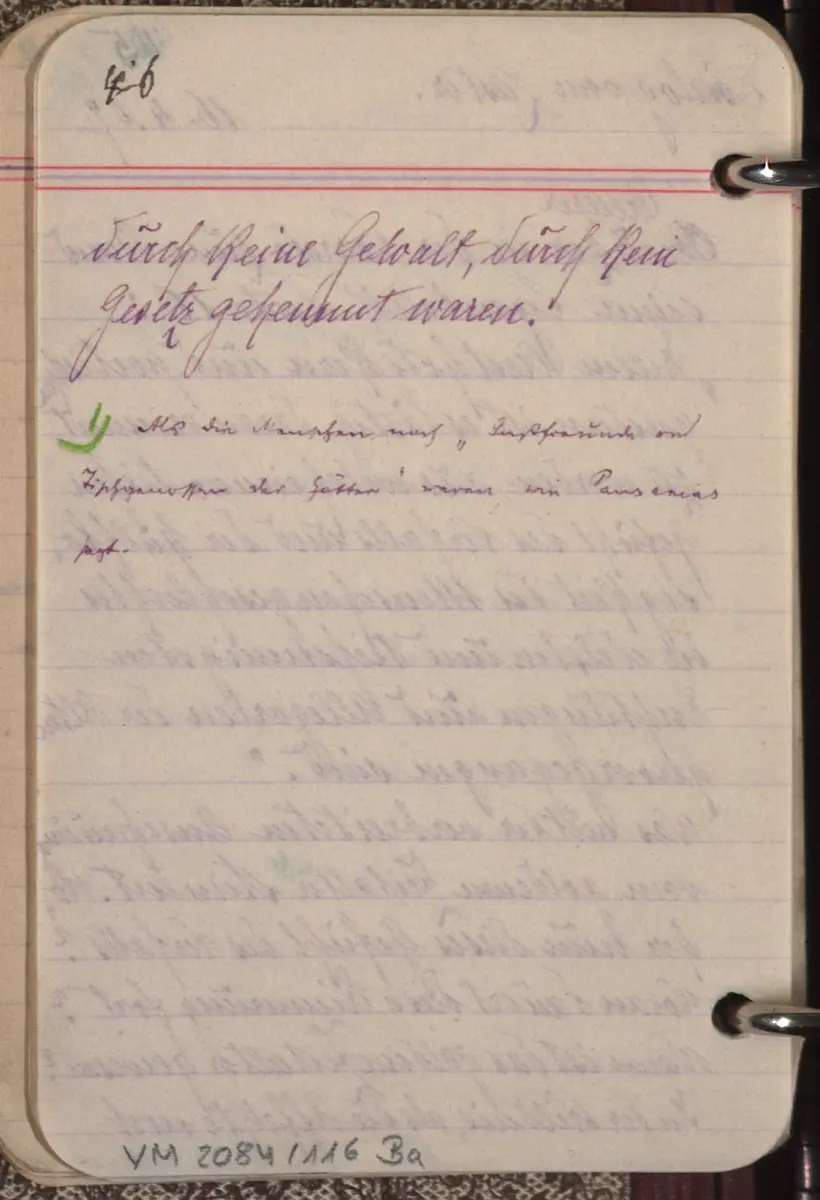 46
durch keine Gewalt, durch kein
Gesetz gehemmt waren.
1) Als die Menschen noch „Gastfreunde und
Tischgenossen der Götter" waren wie Pausanias
sagt.
VM 2084/116 Ba